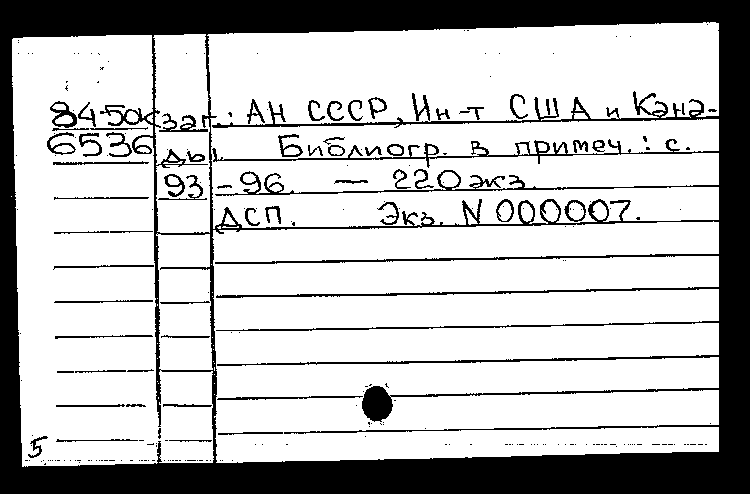 84-5ok заг.: АН СССР, Ин-т США и Кана-
6536 ды. Библиогр. в примеч.: с.
93-96. — 220 экз.
ДСП. Экз. N 000007.
5